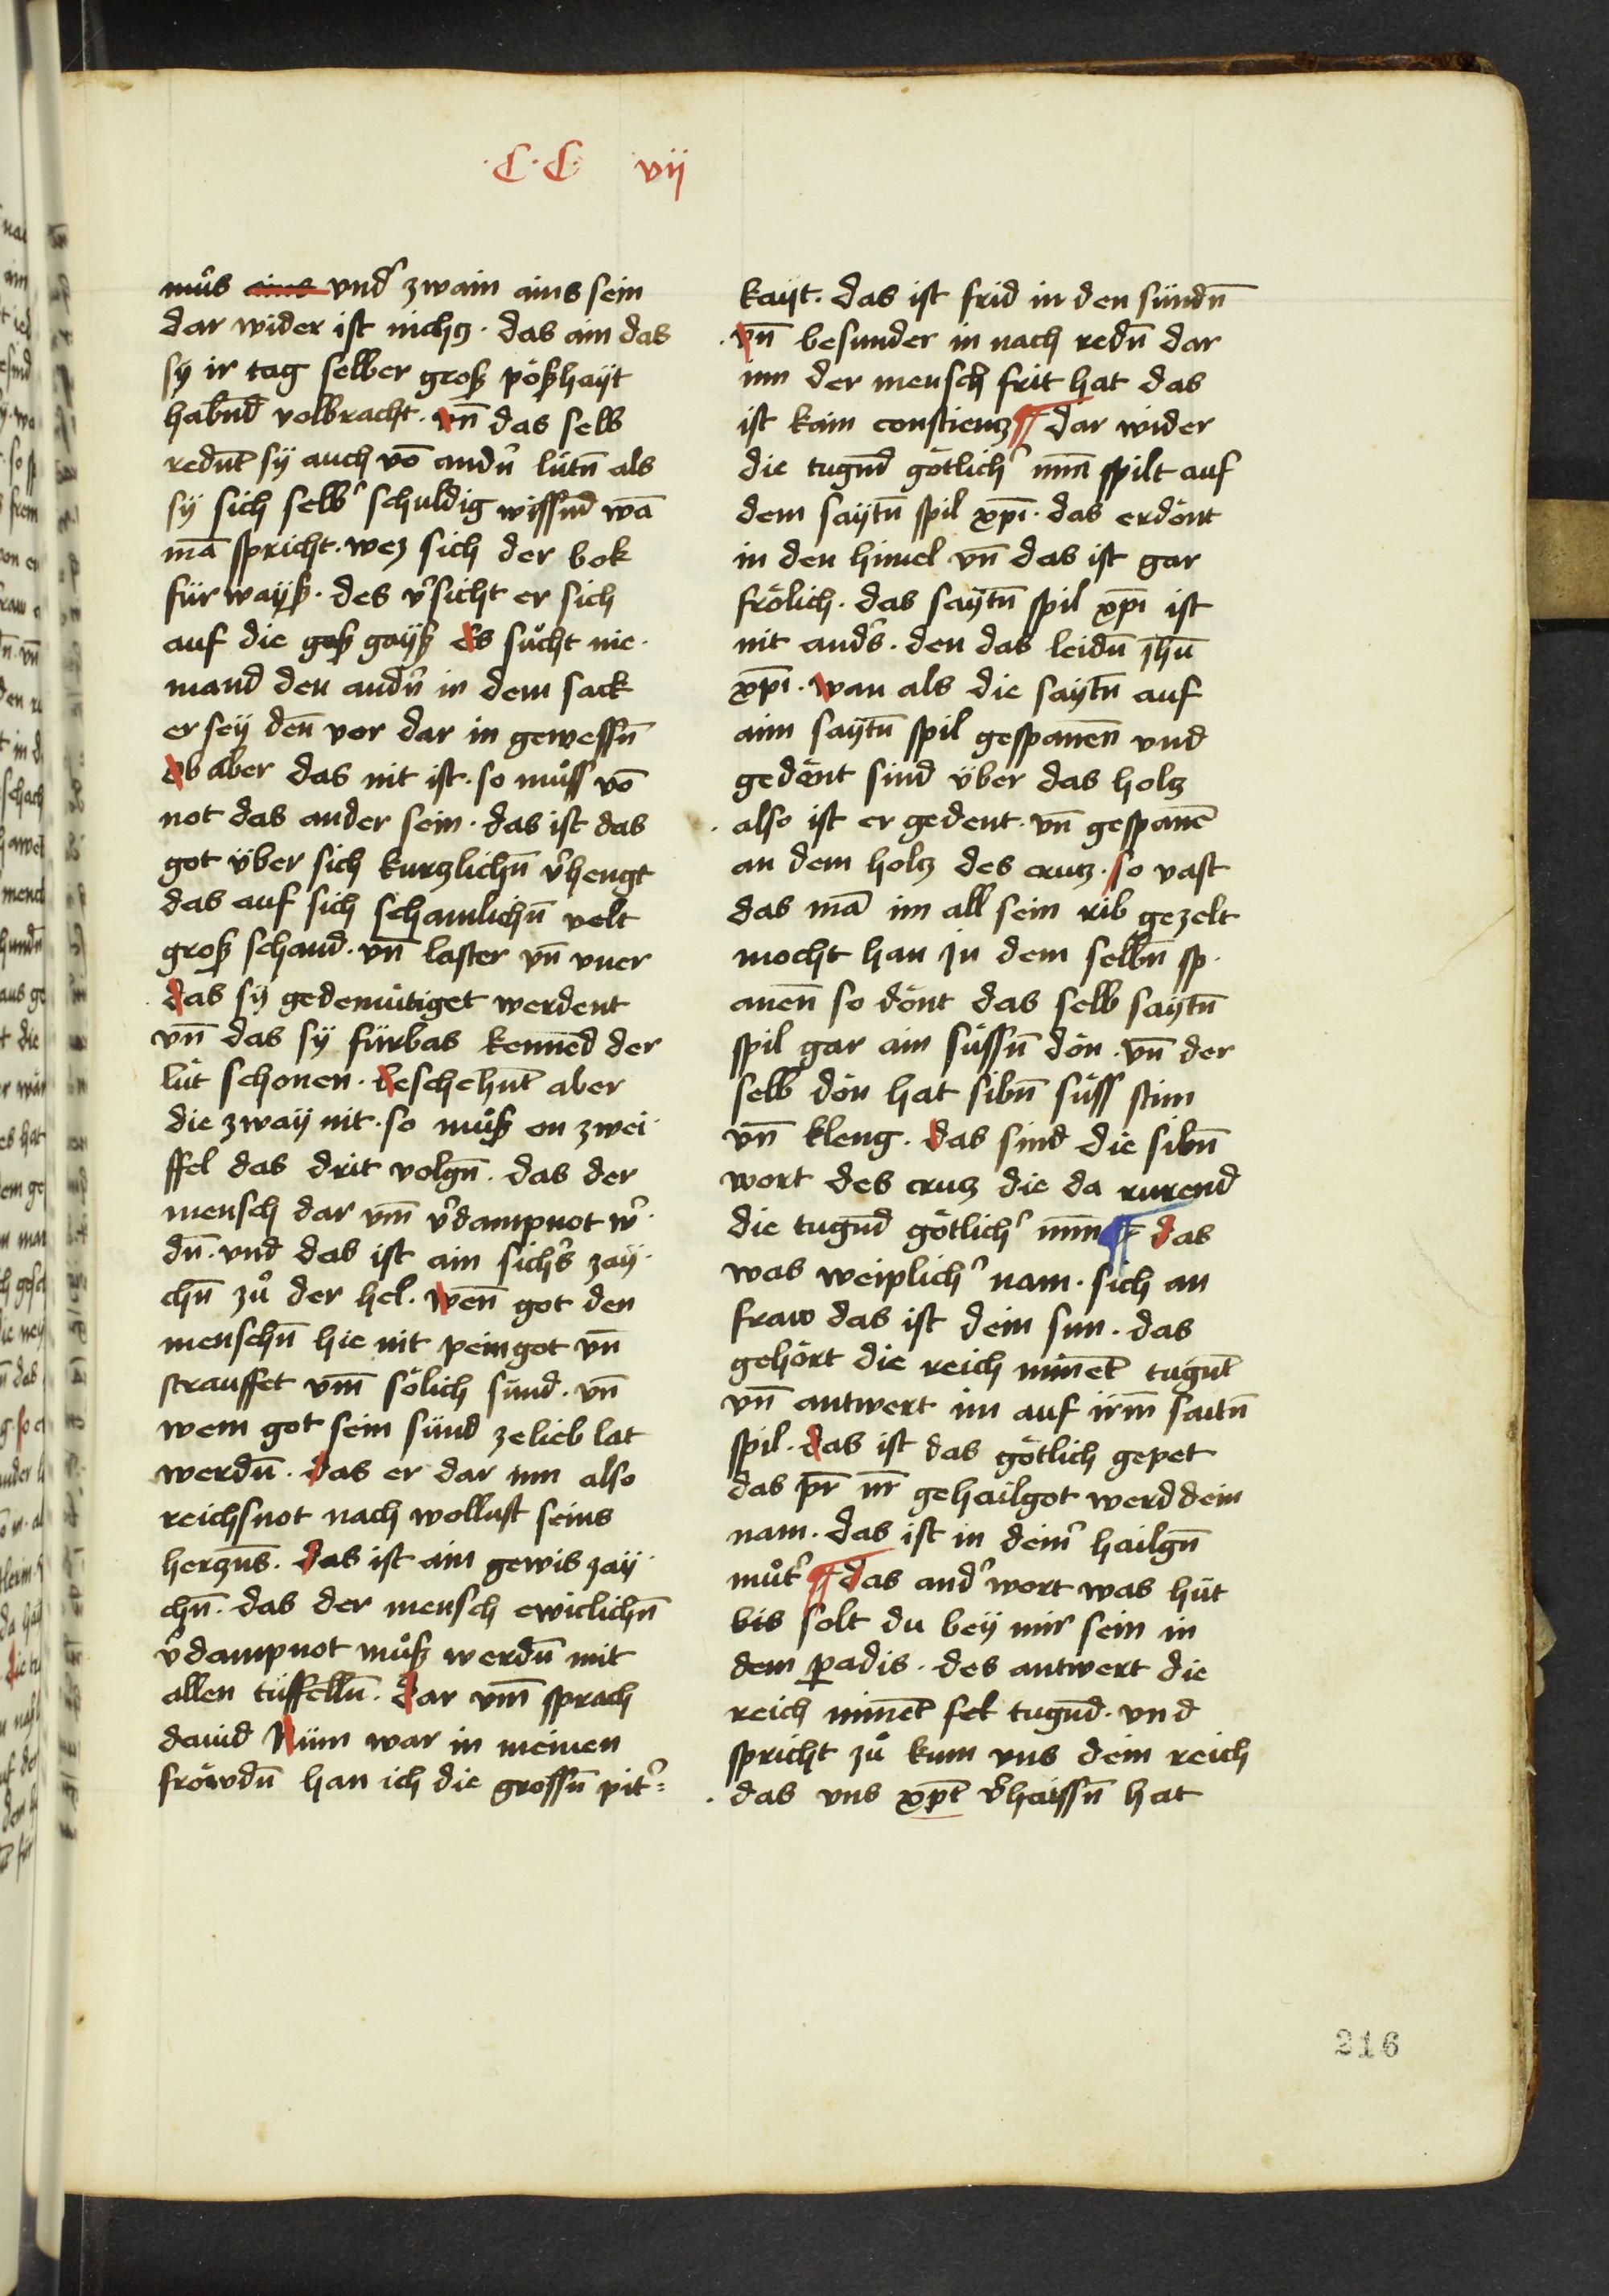 ·C·C· vij
muͦs ains vnd' zwain ains sein
dar wider ist nichcz · das ain das
sÿ ir tag selber groß pößhaÿt
habn̄d volbracht · vn̄ das selb
redn̄t sÿ auch vō andn̄ lütn̄ als
sÿ sich selb' schuldig wissn̄d wā
mā spricht · wez sich der bok
für waÿß · des v'sicht er sich
auf die gaß gaÿß es suͦcht nie·
mand den andn̄ in dem sack
er seÿ den̄ vor dar in gewessn̄
ob aber das nit ist · so muͦss vō
not das ander sein · das ist das
got über sich kurczlichn̄ v'hengt
das auf sich schamlichn̄ velt
groß schand · vn̄ laster vn̄ vner
das sÿ gedemütiget werdent
vn̄ das sÿ fürbas kennēd der
lüt schonen · beschehn̄t aber
die zwaÿ nit · so muͦß on zwei·
ffel das drit volgn̄ · das der
mensch dar vm̄ v'dampnot w'·
dn̄ · vnd das ist ain sich's zaÿ·
chn̄ zuͦ der hel · wen̄ got den
menschn̄ hie nit peingot vn̄
strauffet vm̄ sölich sünd · vn̄
wem got sein sünd ze lieb lat
werdn̄ · das er dar inn also
reichsnot nach wollust seins
herczn̄s · das ist ain gewis zaÿ·
chn̄ · das der mensch ewiclichn̄
v'dampnot muͦß werdn̄ mit
allen tüffelln̄ · dar vm̄ sprach
dauid Nüm war in meinen
fröwdn̄ han ich die grossn̄ pit'=
kaÿt · das ist frid in den sündn̄
vn̄ besunder in nach redn̄ dar
inn der mensch frit hat das
ist kain conscientz ¶ dar wider
die tugn̄d götlich' min̄ spilt auf
dem saÿtn̄ spil xp̄i · das erdönt
in den himel vn̄ das ist gar
frölich · das saÿtn̄ spil xp̄i ist
nit and's · den das leidn̄ ih̄u
xp̄i · wan als die saÿtn̄ auf
aim saÿtn̄ spil gespanen̄ vnd
gedönt sind über das holcz
also ist er gedent · vn̄ gespanē
an dem holcz des crucz · so vast
das mā im all sein rib gezelt
mocht han jn dem selbn̄ sp·
anen̄ so dönt das selb saÿtn̄
spil gar ain süssn̄ dön · vn̄ der
selb dön hat sibn̄ süss stim
vn̄ kleng · das sind die sibn̄
wort des crucz die da rurend
die tugn̄d götlich' min̄ ¶ das
was weiplich' nam · sich an
fraw das ist dein sun · das
gehört die reich minēt tugn̄t
vn̄ antwert im auf irm̄ saitn̄
spil · das ist das götlich gepet
das pr̄ nr̄ gehailgot werd dein
nam · das ist in dein' hailgn̄
muͦt' ¶ das and' wort was hüt
bis solt du beÿ mir sein in
dem padis · des antwert die
reich minēt sel tugn̄d · vnd
spricht zuͦ kum vns dein reich
das vns xp̄c v'haissn̄ hat
216